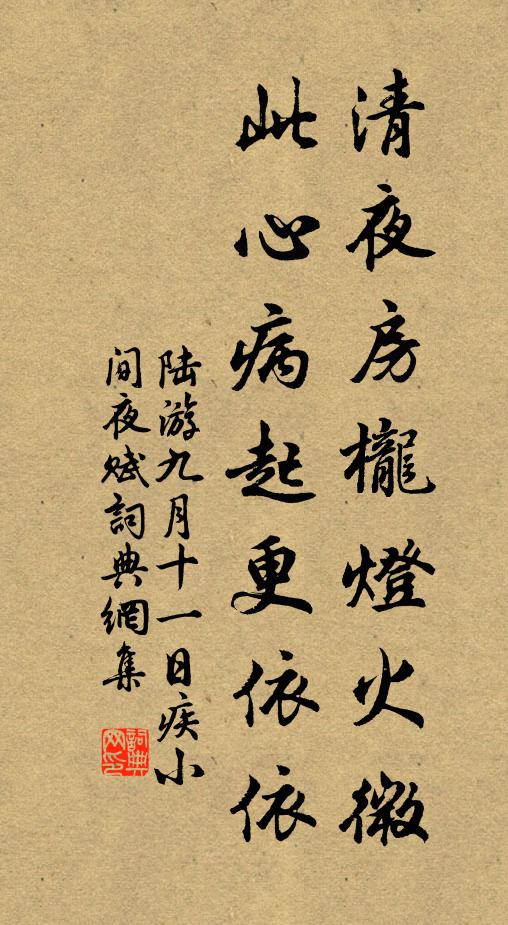 清夜房櫳燈火微
此心病起更依依
陆游九月十一日疾小
间夜赋詞典網集
詞典
网印